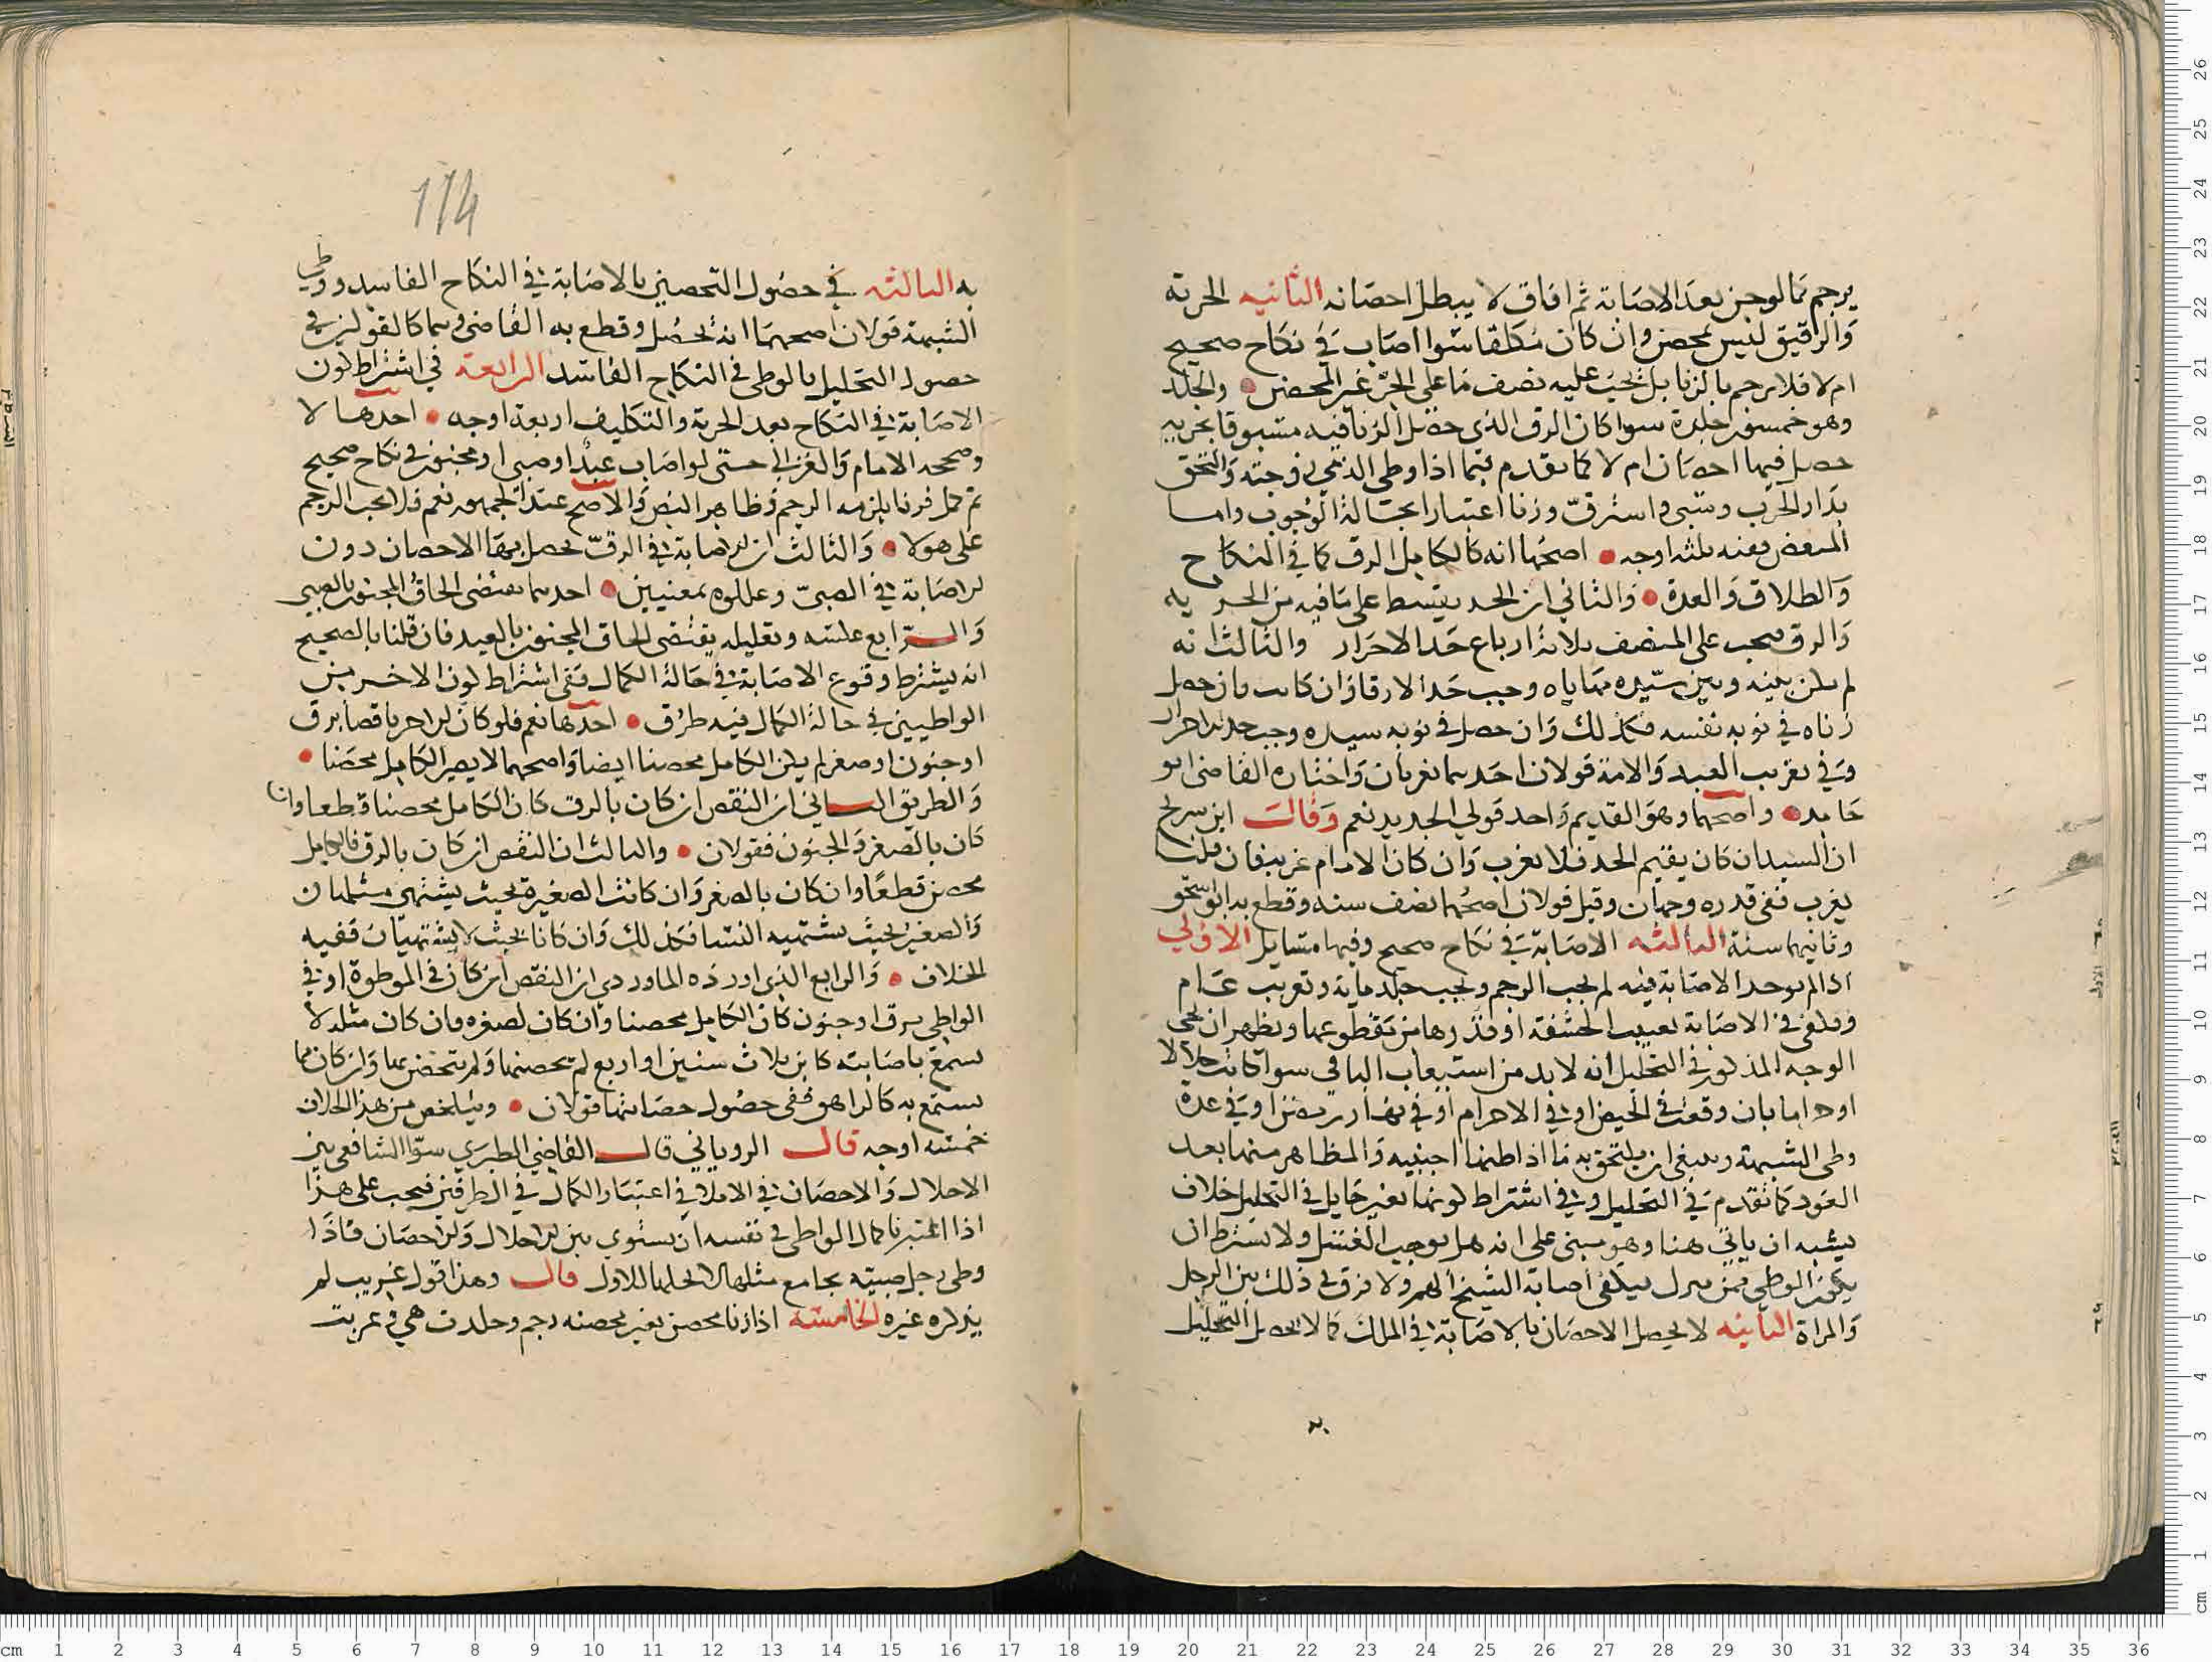 يرجم كما لو جن بعد الاصابة ثم افاق لا يبطل احصانه الثانيه الحرية
والرقيق ليس بمحصن وان كان مكلفا سوا اصاب في نكاح صحيح
ام لا فلا يرجم بالزنا بل يجب عليه نصف ما على الحر غير المحصن والجلد
وهو خمسون جلدة سوا كان الرق الذي حصل الزنا فيه مسبوقا بحرية
حصل فيها احصان ام لا كما تقدم فيما اذا وطي الذمي زوجته والتحق
بدار الحرب وسبي واسترق وزنا اعتبارا بحالة الوجوب واما
المبعض ففيه ثلثه اوجه اصحها انه كالكامل الرق كما في النكاح
والطلاق والعدة والثاني ان الحد يقسط على ما فيه من الحرية
والرق فيجب على المنصف ثلاثة ارباع حد الاحرار والثالث انه
لم يكن بينه وبين سيده مهاياه وجب حد الارقا وان كانت فان حصل
زناه في نوبة نفسه فكذلك وان حصل في نوبة سيده وجب حد الاحرار
وفي تغريب العبد والامة قولان احدهما يغربان واختاره القاضي ابو
حامد واصحهما وهو القديم واحد قولي الجديد نعم وقال ابن سريج
ان السيد ان كان يقيم الحد فلا تغريب وان كان الامام غرب فان قلنا
يغرب ففي قدره وجهان وقيل قولان اصحهما نصف سنه وقطع به ابو اسحق
وثانيهما سنة الثالثه الاصابة في نكاح صحيح وفيها مسايل الاولى
اذا لم توجد الاصابة فيه لم يجب الرجم ويجب جلد مايه وتغريب عام
ويكفي في الاصابة تغييب الحشفة او قدرها من مقطوعها ويظهر ان يجي
الوجه المذكور في التحليل انه لا بد من استيعاب الباقي سوا كانت حلالا
او حراما بان وقعت في الحيض او في الاحرام او في نهار رمضان او في عدة
وطي الشبهة وينبغي ان يلتحق به ما اذا ظنها اجنبيه والمظاهر منها بعد
العود كما تقدم في التحليل وفي اشتراط كونها بغير حايل في التحليل خلاف
يشبه ان ياتي هنا وهو مبني على انه هل يوجب الغسل ولا يشترط ان
يكون الوطي ممن ينزل فيكفي اصابة الشيخ الهم ولا فرق في ذلك بين الرجل
والمراة الثانيه لا يحصل الاحصان بالاصابة في الملك كما لا يحصل التحليل
به الثالثه في حصول التحصين بالاصابة في النكاح الفاسد ووطي
الشبهة قولان اصحهما انه لا يحصل وقطع به القاضي وهما كالقولين في
حصول التحليل بالوطي في النكاح الفاسد الرابعة في اشتراط كون
الاصابة في النكاح بعد الحرية والتكليف اربعة اوجه احدها لا
وصححه الامام والغزالي حتى لو اصاب عبد او صبي او مجنون في نكاح صحيح
ثم كمل فزنا يلزمه الرجم وظاهر النص والاصح عند الجمهور نعم فلا يجب الرجم
على هولا والثالث ان الاصابة في الرق يحصل بها الاحصان دون
الاصابة في الصبي وعللوه بمعنيين احدهما يقتضي الحاق المجنون بالصبي
والرابع عكسه وتعليله يقتضي الحاق المجنون بالعبد فان قلنا بالصحيح
انه يشترط وقوع الاصابة في حالة الكمال ففي اشتراط كون الاخر من
الواطيين في حالة الكمال فيه طرق احدها نعم فلو كان الاخر ناقصا برق
او جنون او صغر لم يكن الكامل محصنا ايضا واصحهما لا يصير الكامل محصنا
والطريق الثاني ان النقص ان كان بالرق كان الكامل محصنا قطعا وان
كان بالصغر والجنون فقولان والثالث ان النقص ان كان بالرق فالكامل
محصن قطعًا وان كان بالصغر وان كانت الصغيرة بحيث يشتهى مثلها ان
والصغير بحيث تشتهيه النسا فكذلك وان كانا بحيث لا يشتهيان ففيه
الخلاف والرابع الذي اورده الماوردي ان النقص ان كان في الموطوة او في
الواطي برق او جنون كان الكامل محصنا وان كان لصغر فان كان مثله لا
يستمتع باصابته كابن ثلاث سنين او اربع لم يحصنها ولم يتحصن بها وان كان مما
يستمتع به كالمراهق ففي حصول حصانتها قولان ويتلخص من هذا الخلاف
خمسه اوجه قال الروياني قال القاضي الطبري سوا الشافعي بين
الاحلال والاحصان في الاملا في اعتبار الكمال في الطرفين فيجب على هذا
اذا اعتبرنا كمال الواطي في نفسه ان يستوي بين الاحلال والاحصان فاذا
وطي رجل صبية يجامع مثلها لا يحلها للاول قال وهذا قول غريب لم
يذكره غيره الخامسة اذا زنا محصن بغير محصنه رجم وجلدت هي وغربت